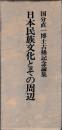 国分直一博士古稀記念論集
日本民族文化とその周辺